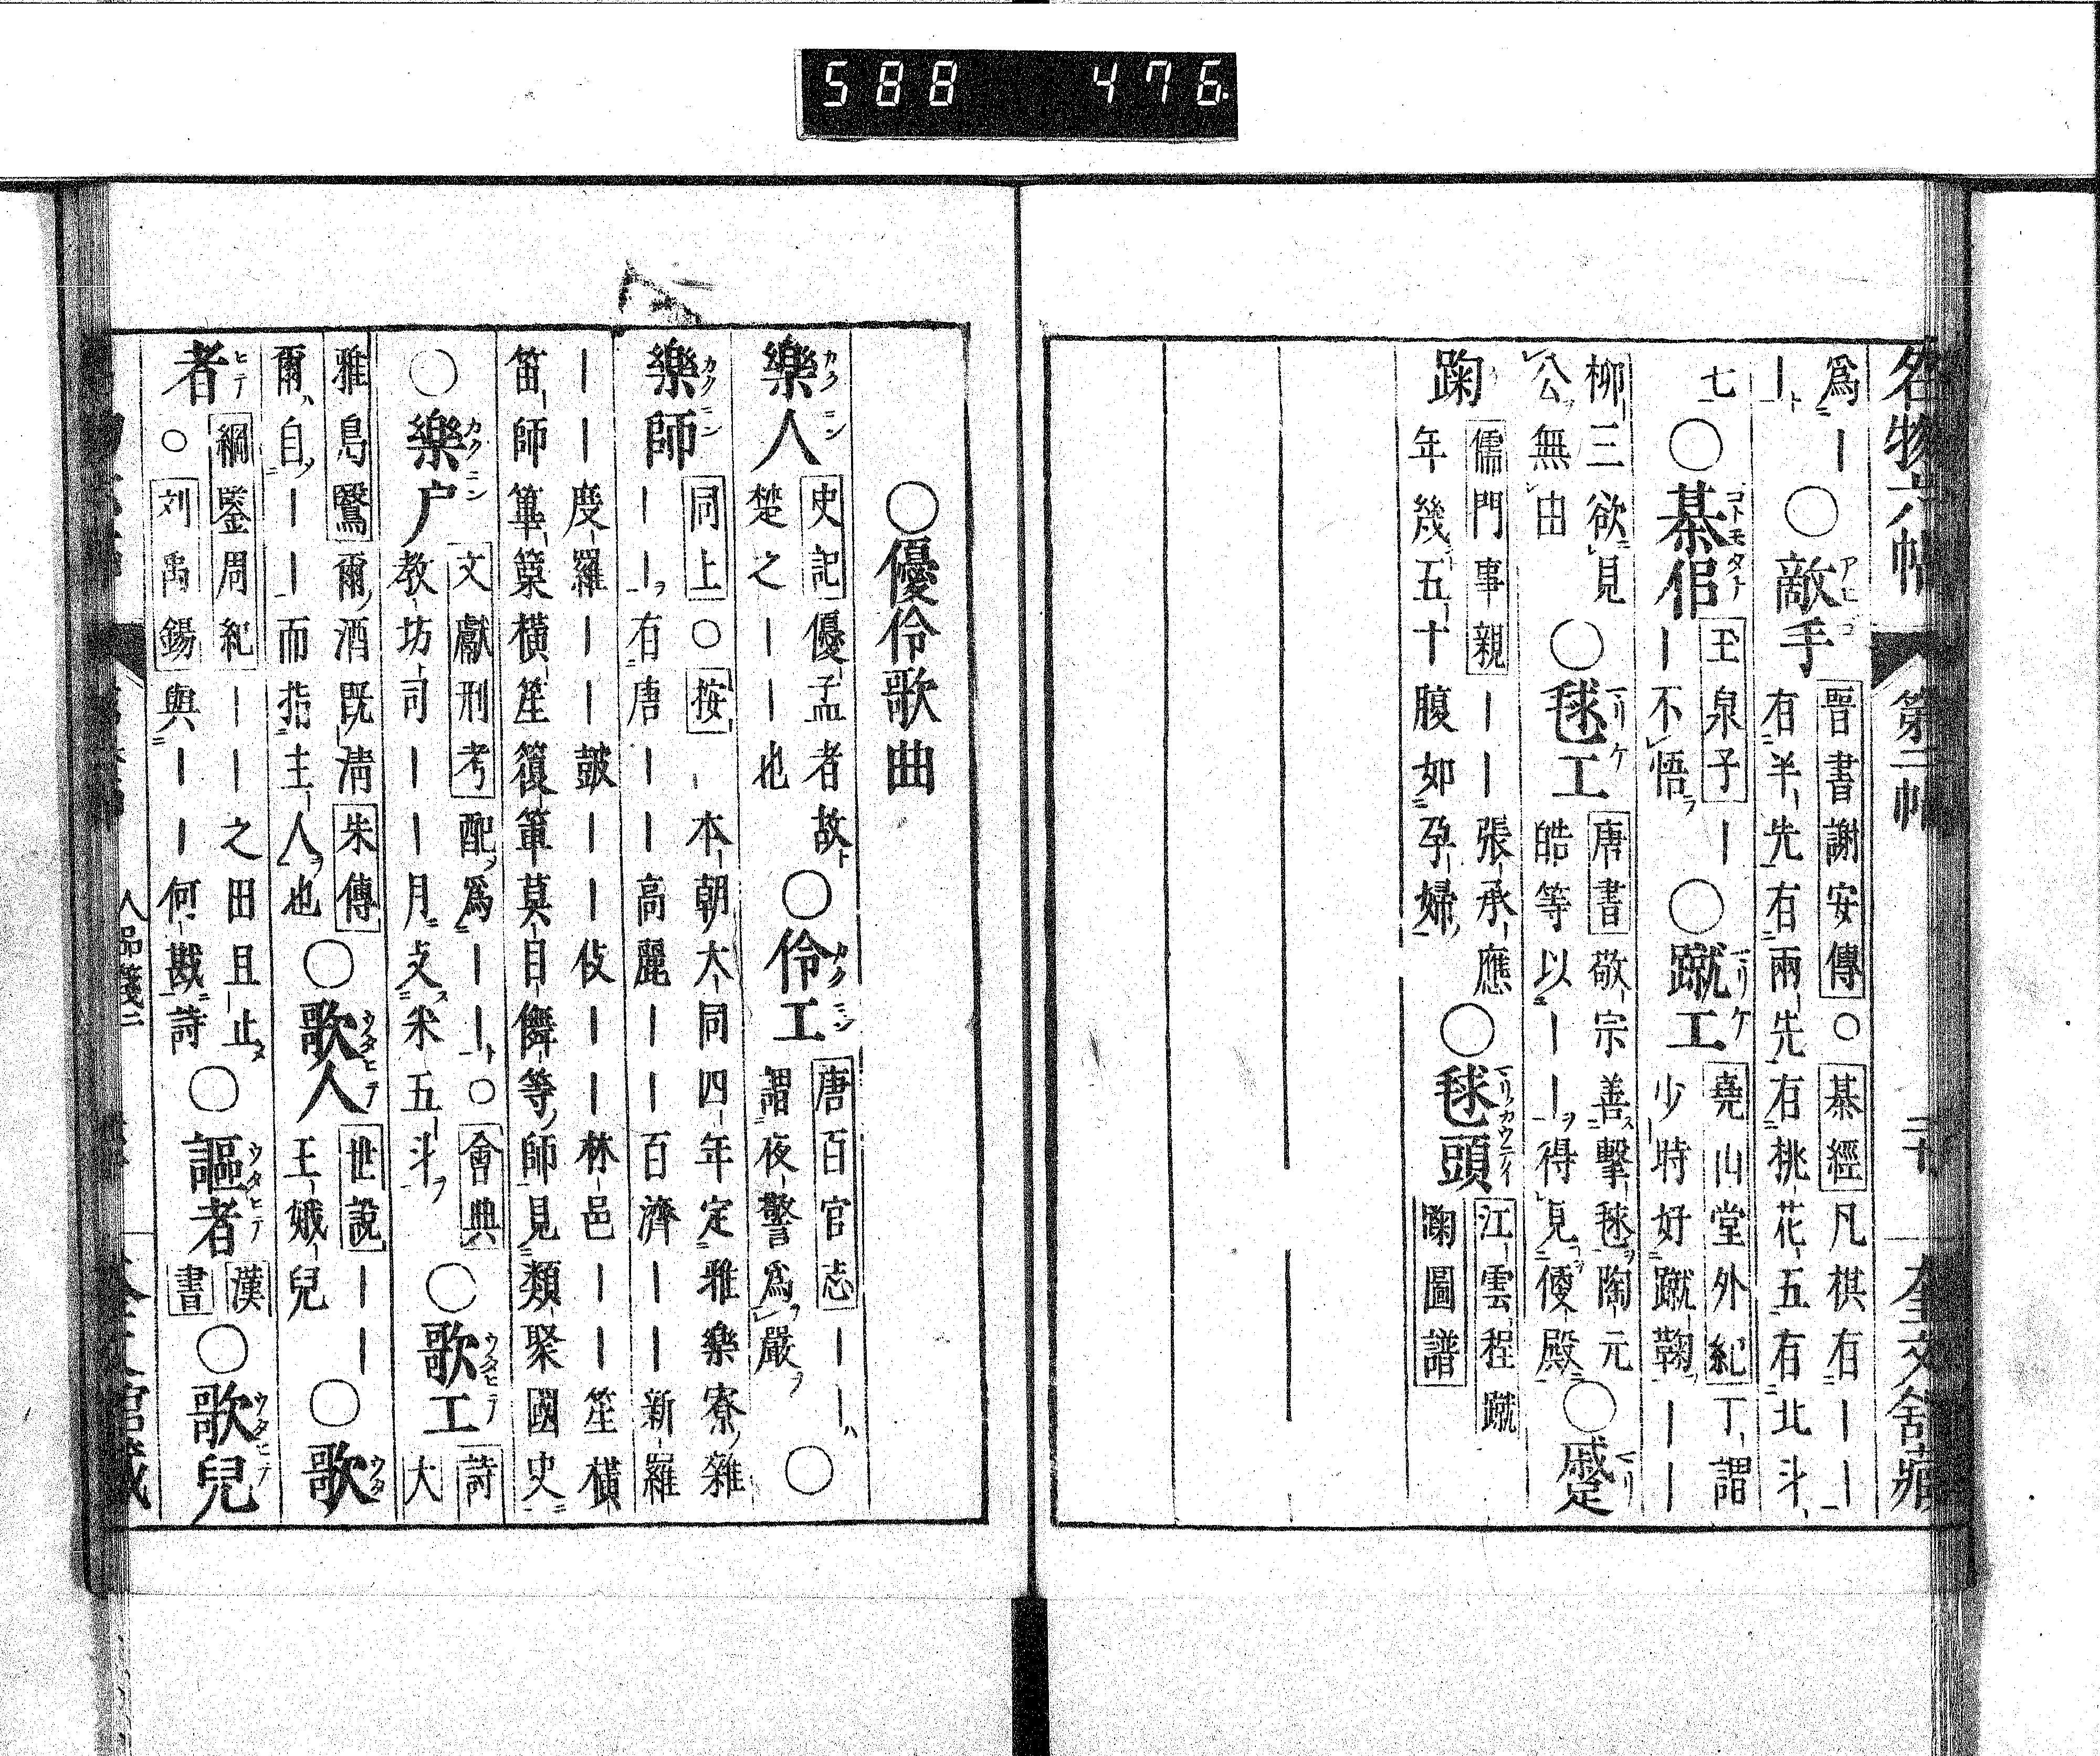 588 476
名物六帖 第二帖 二十 奎文舍藏
爲｜ ○敵手 晋書謝安傳○棊經凡棋有｜｜
｜ 有半先有兩先有桃花五有北斗
七 ○棊侶 玉泉子｜｜不悟 ○蹴工 堯山堂外紀丁謂少時好蹴鞠｜｜
柳三欲見公無由 ○毬工 唐書敬宗善擊毬陶元皓等以｜｜得見便殿 ○蹙
鞠 儒門事親｜｜張承應年幾五十腹如孕婦 ○毬頭 江雲程蹴鞠圖譜
○優伶歌曲
樂人 史記優孟者故楚之｜｜也 ○伶工 唐百官志｜｜謂夜警爲嚴 ○
樂師 同上○按本朝大同四年定雅樂寮雜｜｜有唐｜｜高麗｜｜百濟｜｜新羅
｜｜度羅｜｜鼓｜｜伎｜｜林邑｜｜笙橫
笛師篳篥橫笙箜篌莫目儛等師見類聚國史
○樂户 文獻刑考配爲｜｜○會典教坊司｜｜月支米五斗 ○歌工 詩大
雅鳧鷖爾酒既淸朱傳爾自｜｜而指主人也 ○歌人 世說｜｜王娥兒 ○歌
者 綱鑒周紀｜｜之田且止○刘禹錫與｜｜何戡詩 ○謳者 漢書 ○歌兒
人品箋二